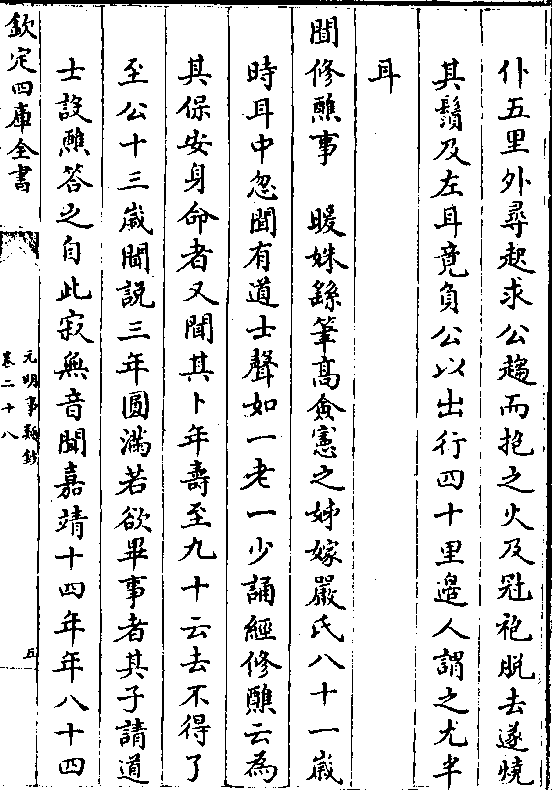 仆五里外尋起求公趨而抱之火及冠袍脫去遂燒
其鬚及左耳竟負公以出行四十里邉人謂之尤半
耳
聞修醮事　暖姝䌛筆高僉憲之姊嫁嚴氏八十一嵗
時耳中忽聞有道士聲如一老一少誦經修醮云為
其保安身命者又聞其卜年壽至九十云去不得了
至公十三嵗聞説三年圓滿若欲畢事者其子請道
士設醮答之自此寂無音聞嘉靖十四年年八十四
欽定四庫全書
元明事類鈔
卷二十八
五